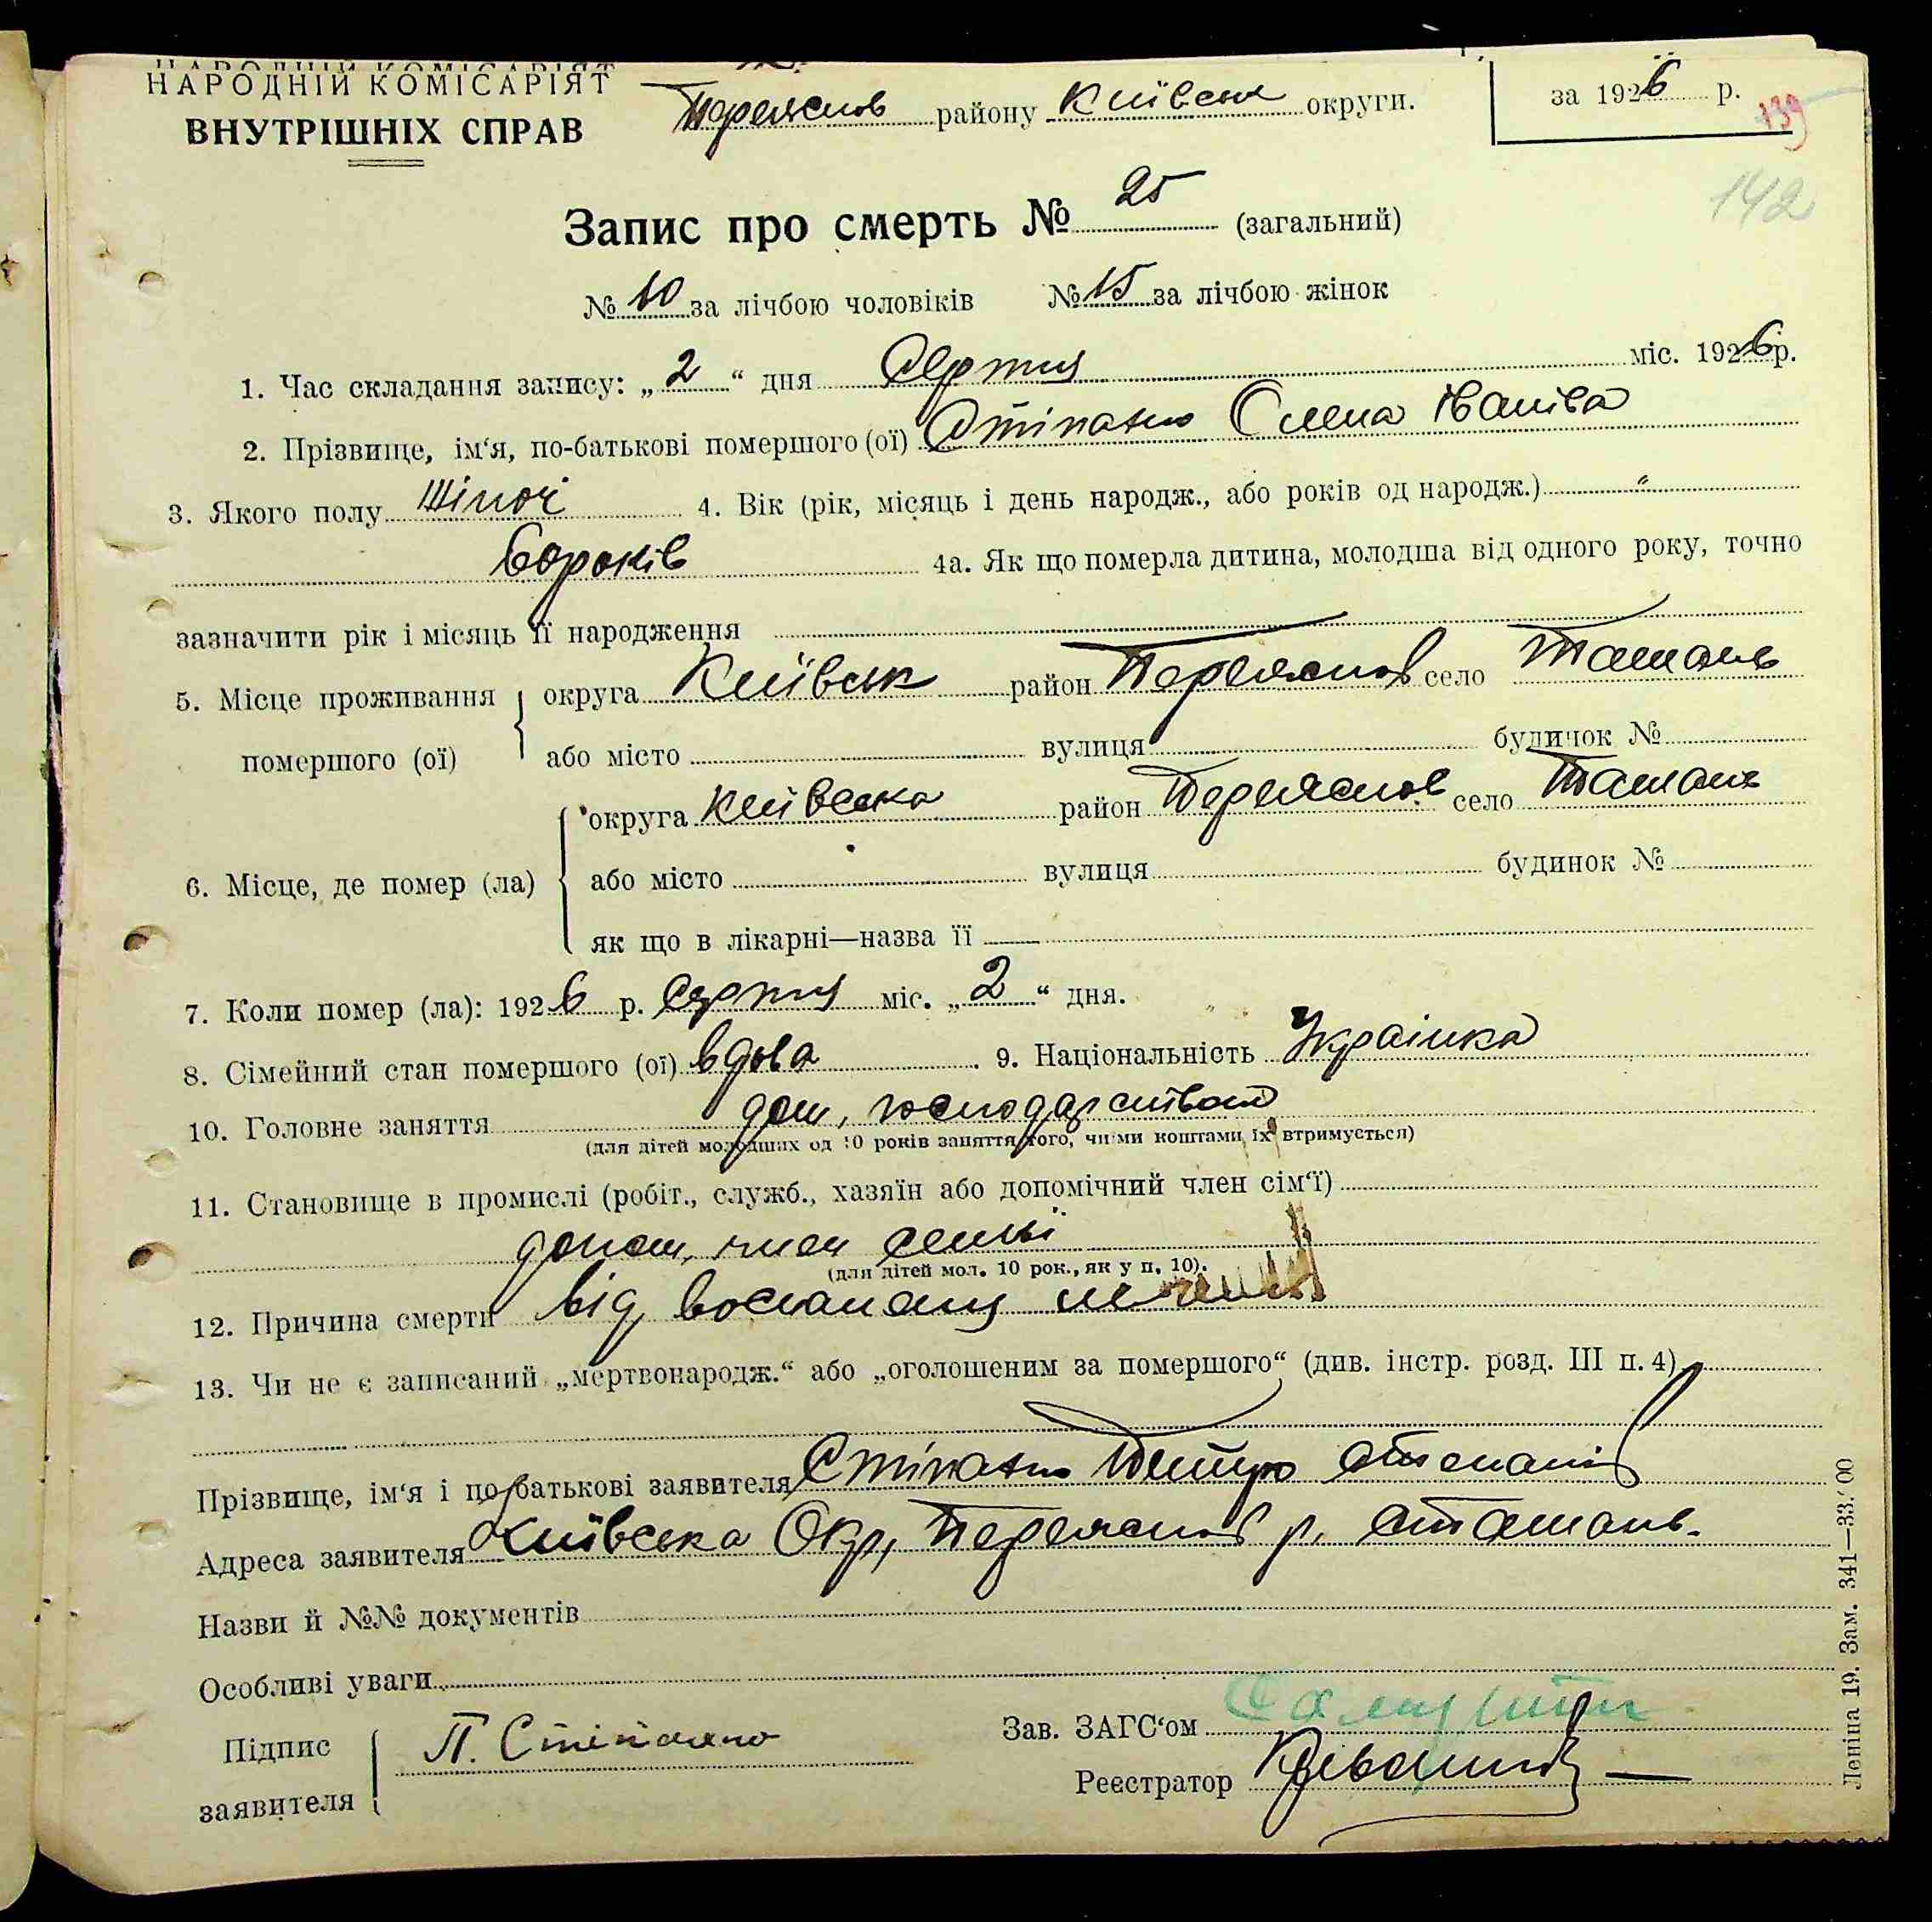 НАРОДНІЙ КОМІСАРІЯТ
ВНУТРІШНІХ СПРАВ
Переяслов району Київськ округи.
за 1926 р.
139
142
Запис про смерть № 25 (загальний)
№ 10 за лічбою чоловіків № 15 за лічбою жінок
1. Час складання запису: „2“ дня Серпня міс. 1926 р.
2. Прізвище, ім‘я, по-батькові помершого (ої) Олена Іванівна
3. Якого полу Жіночі 4. Вік (рік, місяць і день народж., або років од народж.) "
60 років 4а. Як що померла дитина, молодша від одного року, точно
зазначити рік і місяць її народження
5. Місце проживання помершого (ої) округа Київськ район Переяслов село Ташань
або місто вулиця будинок №
6. Місце, де помер (ла) округа Київська район Переяслов село Ташань
або місто вулиця будинок №
як що в лікарні—назва її —
7. Коли помер (ла): 1926 р. Серпня міс. „2“ дня.
8. Сімейний стан помершого (ої) вдова. 9. Національність Українка
10. Головне заняття дом, господарством
(для дітей молодших од 10 років заняття того, чиїми коштами їх втримується)
11. Становище в промислі (робіт., служб., хазяїн або допомічний член сім‘ї)
допом, член семьї
(для дітей мол. 10 рок., як у п. 10).
12. Причина смерти від
13. Чи не є записаний „мертвонародж.“ або „оголошеним за помершого“ (див. інстр. розд. III п. 4)
Прізвище, ім‘я і по батькові заявителя Петро
Адреса заявителя Київська Окр, Переяслов р, с Ташань.
Назви й №№ документів
Особливі уваги
Підпис заявителя П.
Зав. ЗАГС‘ом
Реєстратор
Леніна 19. Зам. 341—33.000